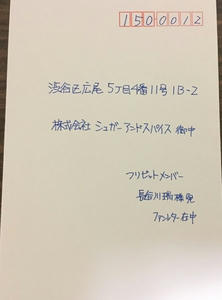 1500012
渋谷区広尾5丁目4番11号1B-2
株式会社シュガーアンドスパイス 御中
フリゼットメンバー
長谷川瑞様宛
ファンレター在中